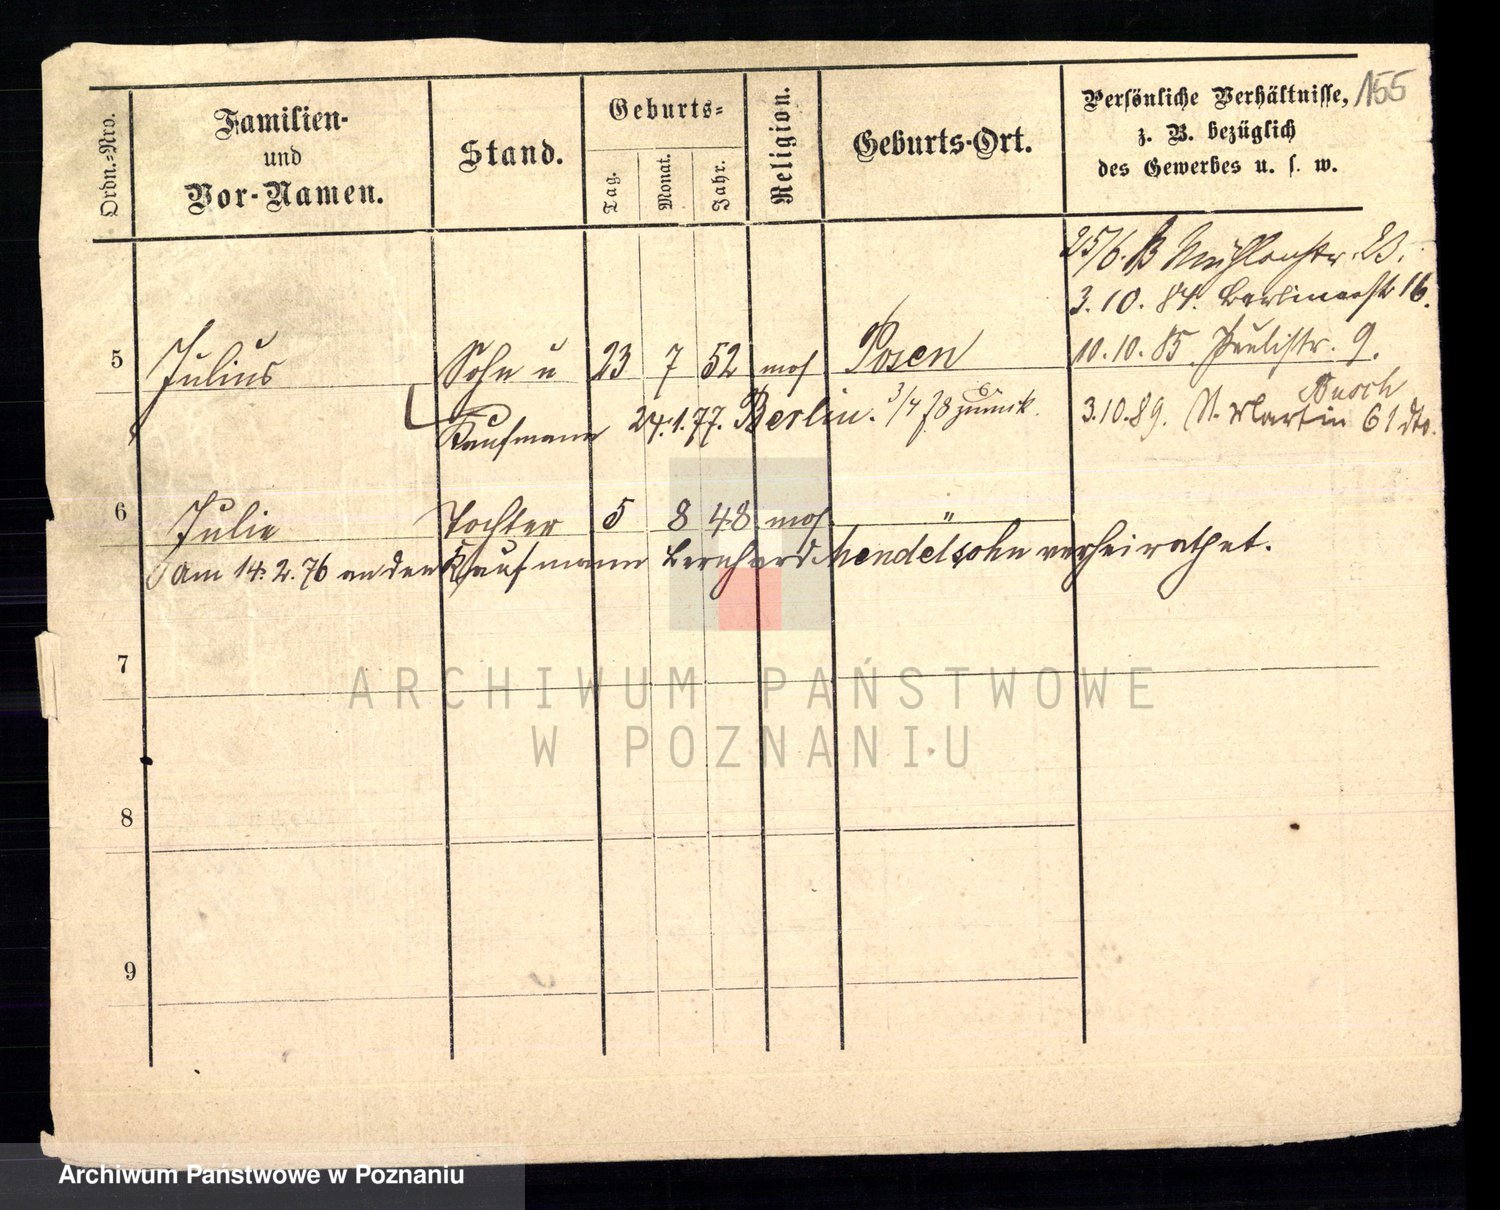 155
Ordn.-Nro.
Familien-
und
Vor-Namen.
Stand.
Geburts-
Tag.
Monat.
Jahr.
Religion.
Geburts-Ort.
Persönliche Verhältnisse,
z. B. bezüglich
des Gewerbes u. s. w.
25/6. Mühlenstr.
3.10.84. Berlinerstr 16.
5 Julius Sohn u 23 7 52 mos Posen 10.10.85. Paulistr. 9.
Busch
Kaufmann 24.1.77. Berlin. 3/4 78 zurück. 3.10.89. St. Martin 61 dto.
6 Julie Tochter 5 8 48 mos "
Am 14.2.76 an den Kaufmann Bernhard Mendelsohn verheirathet.
7
8
9
ARCHIWUM PAŃSTWOWE
W POZNANIU
Archiwum Państwowe w Poznaniu